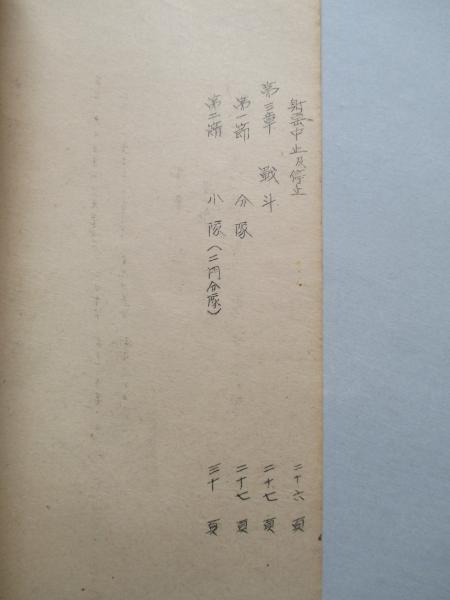 射撃中止及停止 二十六頁
第三章 戦斗 二十七頁
第一節 分隊 二十七頁
第二節 小隊(二門分隊) 三十頁